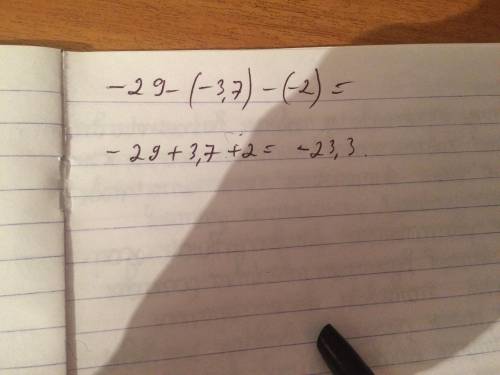 -29-(-3,7)-(-2)=
-29+3,7+2= -23,3.